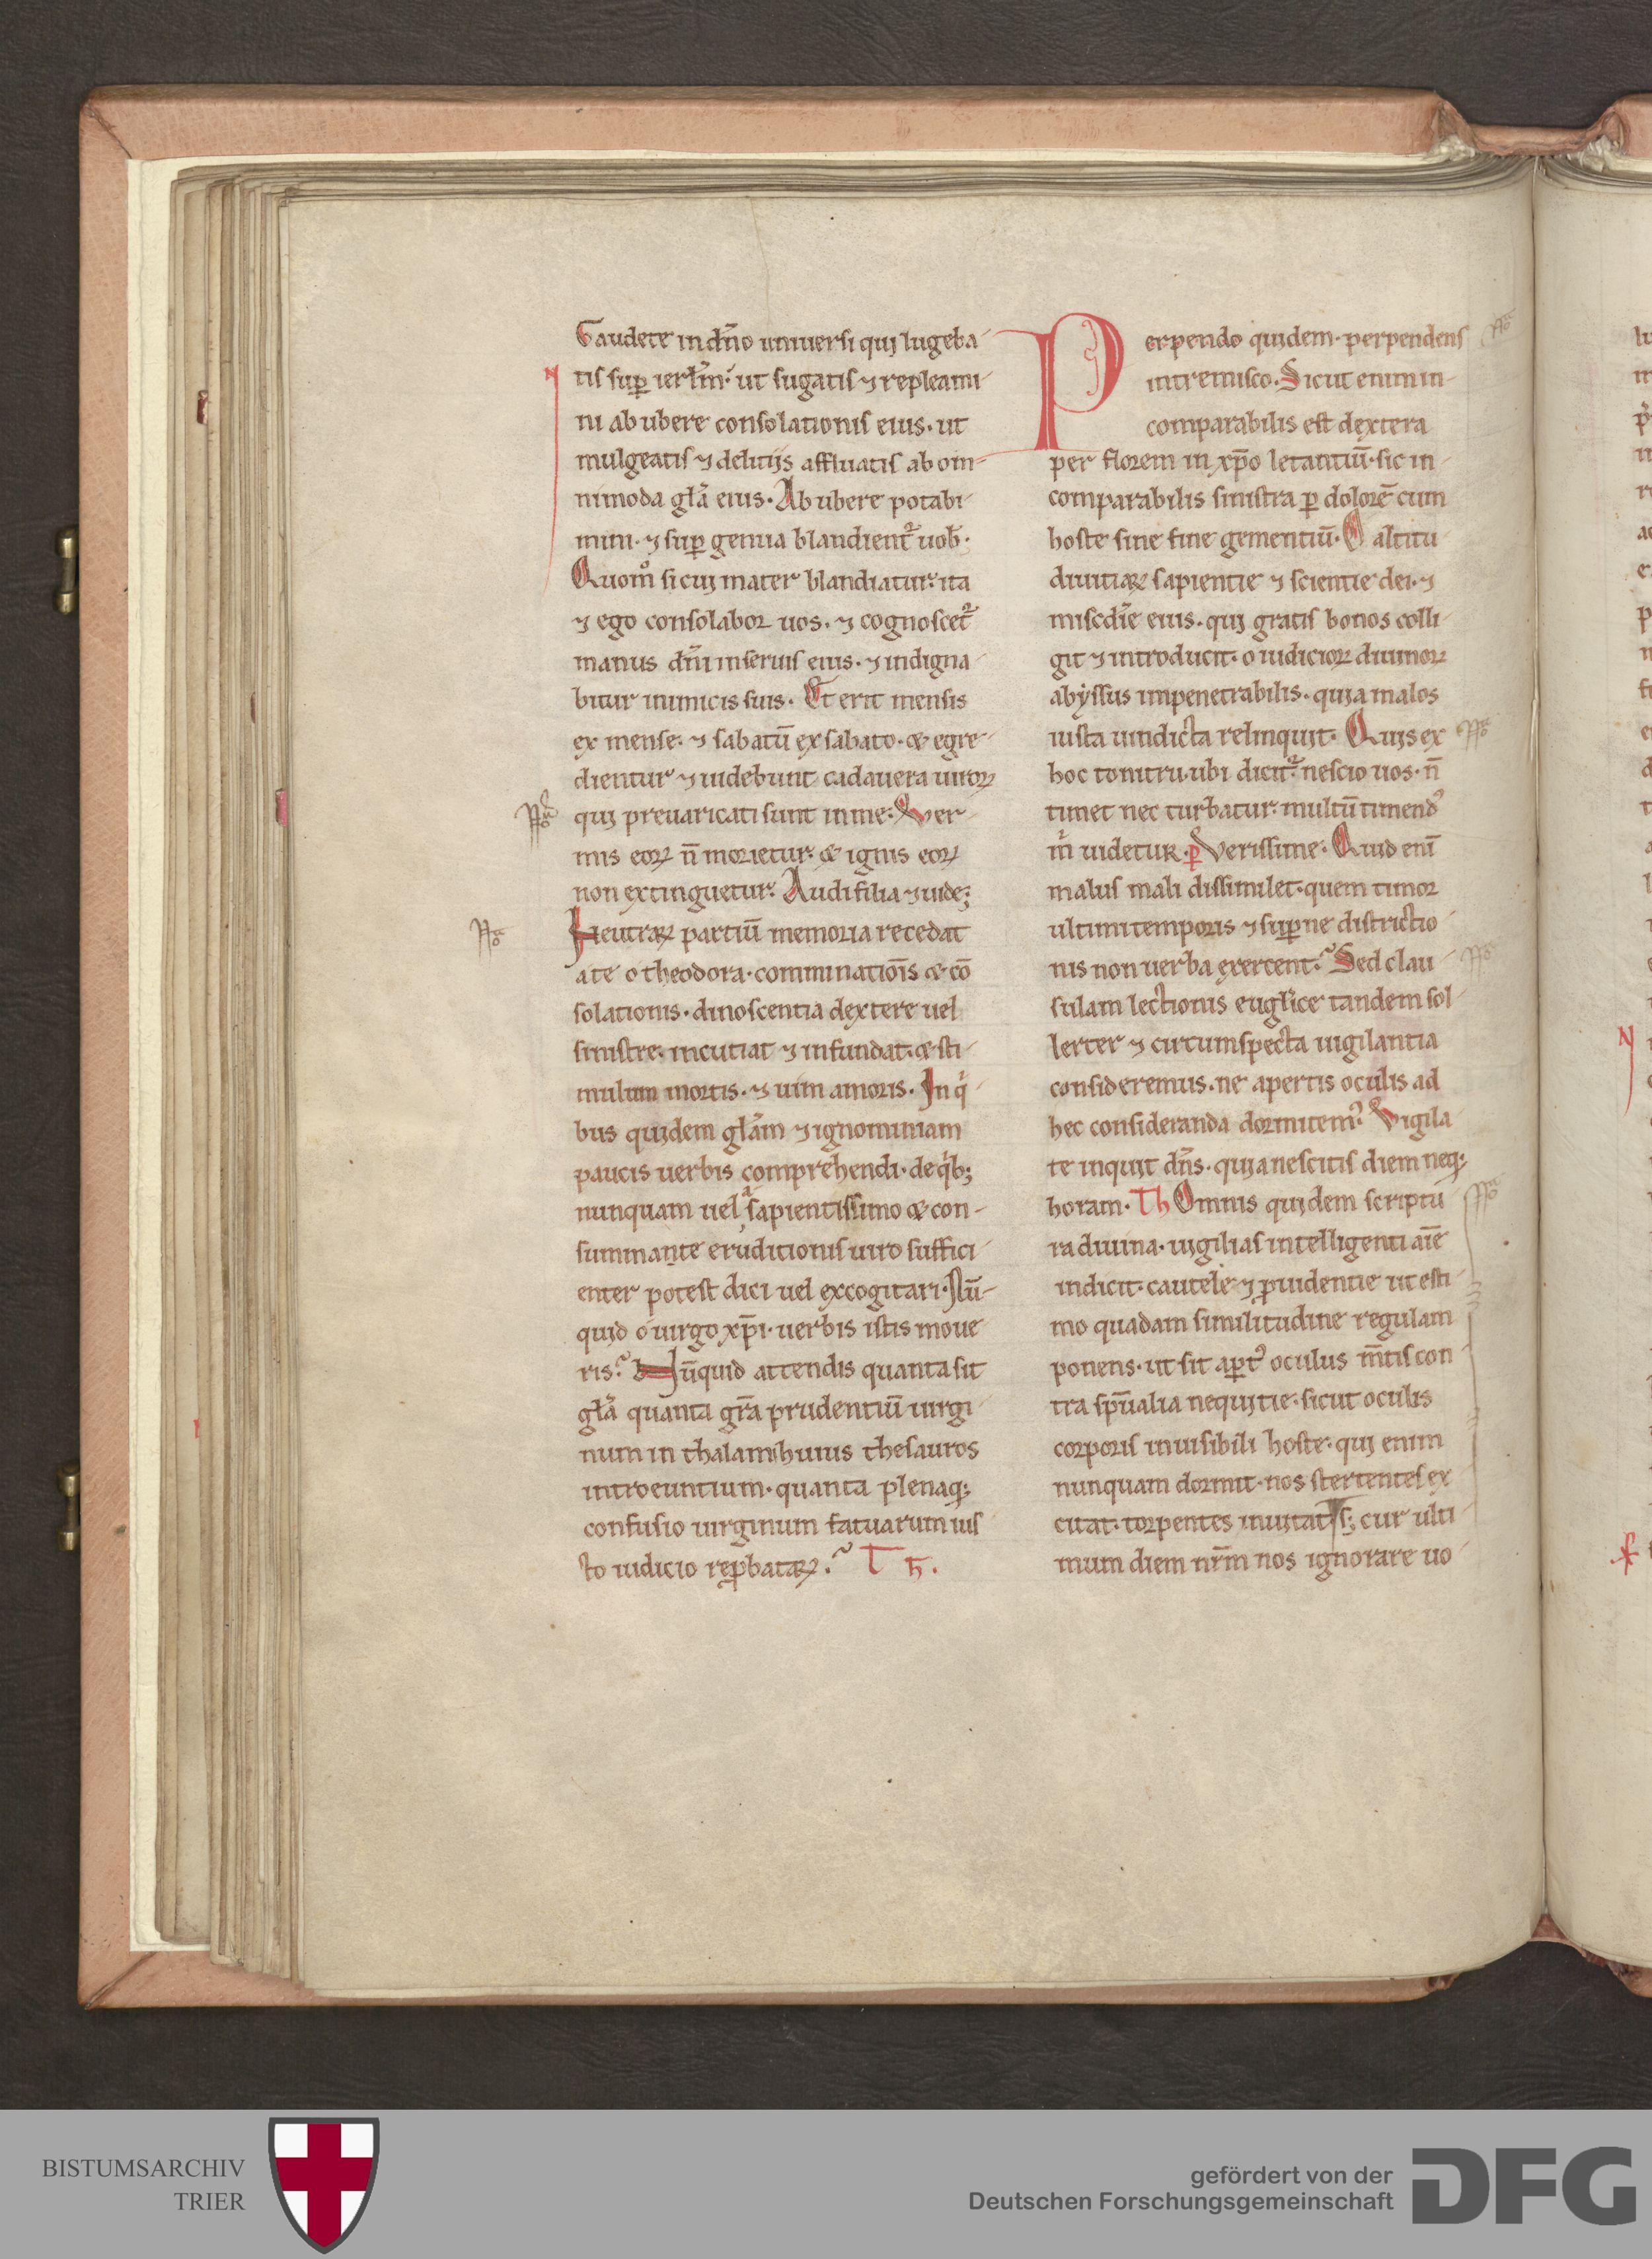 Gaudete in dn̄o uniuersi qui lugeba-
tis sup̲ ierłm̄. ut sugatis ⁊ repleami-
ni ab ubere consolationis eius. ut
mulgeatis ⁊ delitijs affluatis ab om-
nimoda gła eius. Ab ubere potabi-
mini. ⁊ sup̲ genua blandient̃ uob̄.
Quom̊ si cui mater blandiatur. ita
⁊ ego consolabor uos. ⁊ cognoscet̃
manus dn̄i in seruis eius. ⁊ indigna-
bitur inimicis suis. Et erit mensis
ex mense. ⁊ sabatū ex sabato. & egre-
dientur ⁊ uidebunt cadauera uiroꝝ
qui preuaricati sunt in me. Ver-
mis eoꝝ n̄ morietur. & ignis eoꝝ
non extinguetur. Audi filia ⁊ uide;
Neutraꝝ partiū memoria recedat
a te o theodora. comminatiōis & cō-
solationis. dinoscentia dextere uel
sinistre. incutiat ⁊ infundat. & sti-
mulum mortis. ⁊ uim amoris. In qͥ-
bus quidem głam ⁊ ignominiam
paucis uerbis comprehendi. de qͥb;
nunquam uel a sapientissimo & con-
summante eruditionis uiro suffici-
enter potest dici uel excogitari. Nū-
quid o uirgo xp̄i. uerbis istis moue-
ris? Nūquid attendis quanta sit
gła quanta gr̄a prudentiū uirgi-
num in thalami huius thesauros
introeuntium. quanta plenaq;
confusio uirginum fatuarum ius-
to iudicio reꝓbataꝝ? T h̄.
Perpendo quidem. perpendens
intremisco. Sicut enim in-
comparabilis est dextera
per florem in xp̄o letantiū. sic in-
comparabilis sinistra ꝑ dolorē cum
hoste sine fine gementiū. O altitu
diuitiaꝝ sapientie ⁊ scientie dei. ⁊
miscdīe eius. qui gratis bonos colli-
git ⁊ introducit. o iudicioꝝ diuinoꝝ
abyssus impenetrabilis. quia malos
iusta uindicta relinquit. Quis ex
hoc tonitru. ubi dicit̃ nescio uos. n̄
timet nec turbatur. multū timendꝰ
m̊ uidetur. ꝑ Verissime. Quid enī
malus mali dissimilet. quem timor
ultimi temporis ⁊ sup̲ne districtio-
nis non uerba exercent? Sed clau-
sulam lectionis euglice tandem sol-
lerter ⁊ circumspecta uigilantia
consideremus. ne apertis oculis ad
hec consideranda dormitemꝰ. Vigila-
te inquit dn̄s. quia nescitis diem neq;
horam. Th Omnis quidem scriptu-
ra diuina. uigilias intelligenti aīe
indicit. cautele ⁊ ꝓuidentie ut esti-
mo quadam similitudine regulam
ponens. ut sit ap̲tꝰ oculus m̄tis con-
tra sp̄ualia nequitie. sicut oculis
corporis inuisibili hoste. qui enim
nunquam dormit. nos stertentes ex-
citat. torpentes inuitat. S; cur ulti-
mum diem nr̄m nos ignorare uo-
BISTUMSARCHIV
TRIER
gefördert von der
Deutschen Forschungsgemeinschaft
DFG